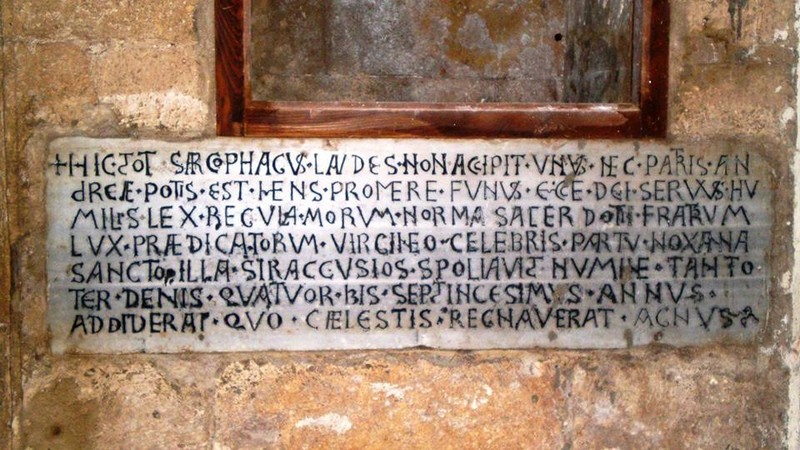 +HIC·TOT·SARCOPHAGUS·LAUDES·NON ACCIPIT·UNUS·NEC·PATRIS·AN
dREÆ·POTIS·EST·MENS·PROMERE·FUNUS·ECCE·DEI·SERVUS·HU
MILIS·LEX·REGULA·MORUM·NORMA SACERDOTII·FRATRUM
LUX·PRÆDICATORUM·VIRGINEO·CELEBRIS·PARTU·NOX·ANA
SANCTOR·ILLA·SIRACCUSIOS·SPOLIAVIT NUMINE·TANTO
TER·DENIS·QUATUOR·BIS·SEPTINGESIMUS·ANNUS·
ADDIDERAT·QUO·CÆLESTIS·REGNAVERAT·AGNUS